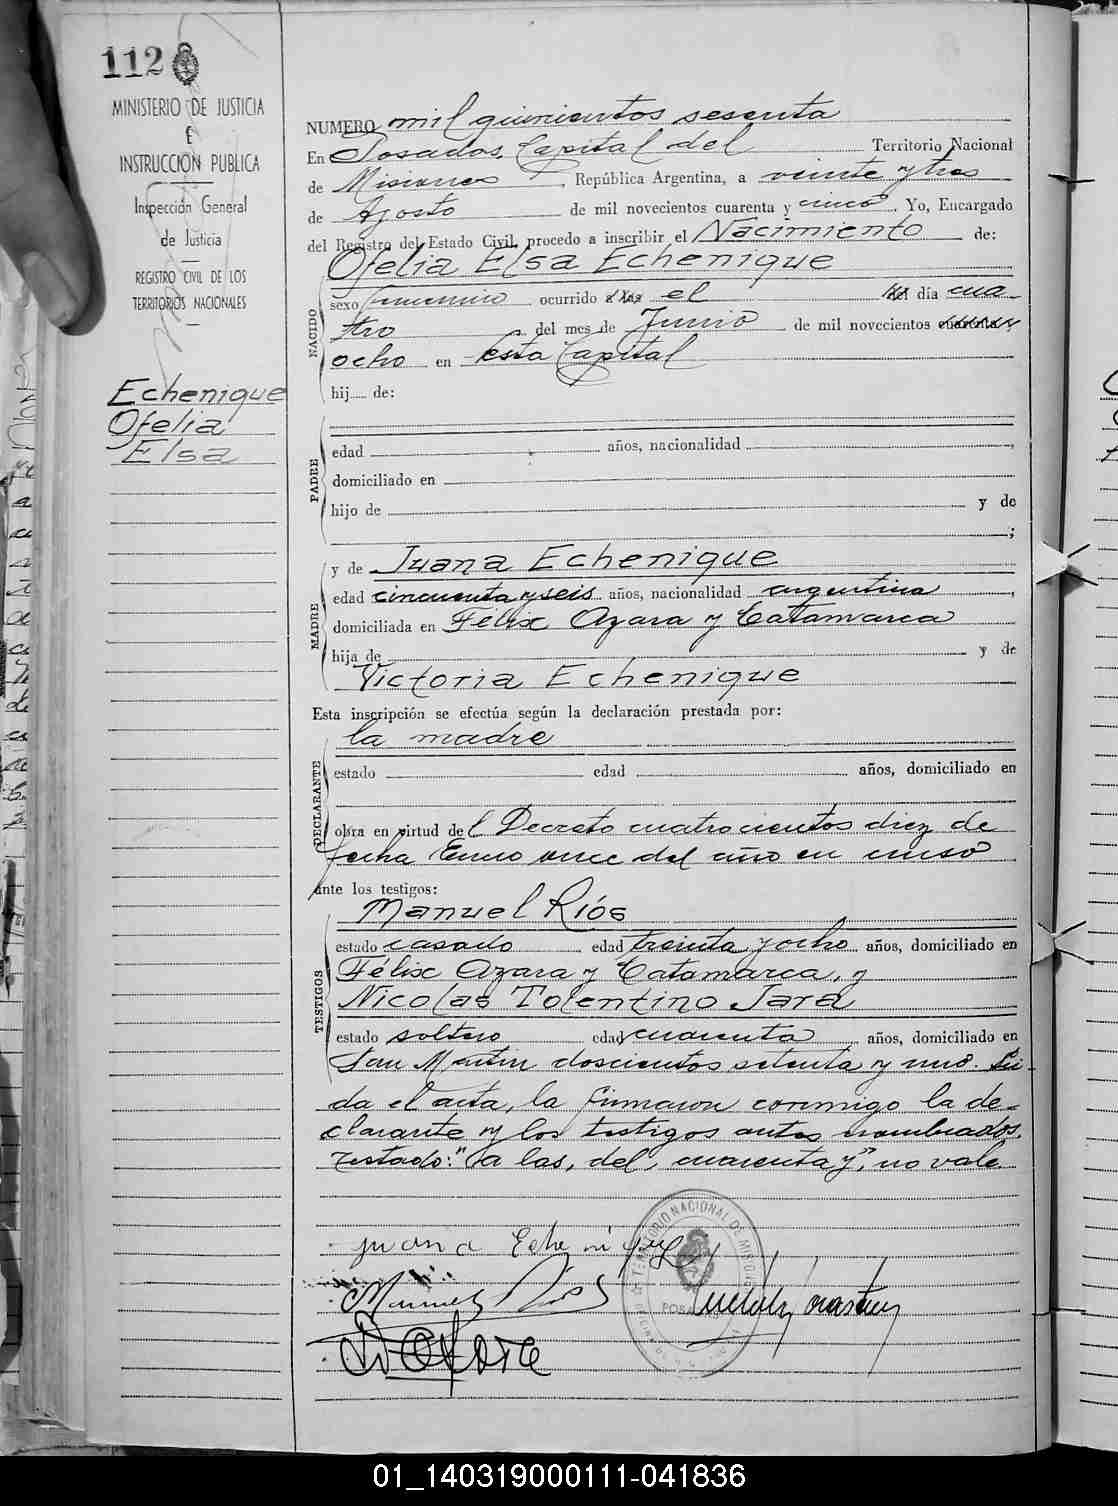 112
MINISTERIO DE JUSTICIA
E
INSTRUCCIÓN PUBLICA
Inspección General
de Justicia
REGISTRO CIVIL DE LOS
TERRITORIOS NACIONALES
Echenique
Ofelia
Elsa
NUMERO mil quinientos sesenta
En Posadas, Capital del Territorio Nacional
de Misiones, República Argentina, a veinte y tres
de Agosto de mil novecientos cuarenta y cinco. Yo, Encargado
del Registro del Estado Civil, procedo a inscribir el Nacimiento de:
Ofelia Elsa Echenique
NACIDO
sexo femenino ocurrido a las el del día cua-
tro del mes de Junio de mil novecientos cuarenta y
ocho en esta Capital
hij..... de:
PADRE
edad años, nacionalidad
domiciliado en
hijo de y de
;
MADRE
y de Juana Echenique
edad cincuenta y seis años, nacionalidad argentina
domiciliada en Félix Azara y Catamarca
hija de y de
Victoria Echenique
Esta inscripción se efectúa según la declaración prestada por:
la madre
DECLARANTE
estado edad años, domiciliado en
obra en virtud del Decreto cuatrocientos diez de
fecha Enero once del año en curso
ante los testigos:
Manuel Ríos
TESTIGOS
estado casado edad treinta y ocho años, domiciliado en
Félix Azara y Catamarca, y
Nicolas Tolentino Jara
estado soltero edad cuarenta años, domiciliado en
San Martin doscientos setenta y uno. Leí-
da el acta, la firmaron conmigo la de-
clarante y los testigos antes nombrados.
Testado: "a las, del, cuarenta y", no vale
Juana Echenique
Manuel Rios
TERRITORIO NACIONAL DE MISIONES
POSADAS
01_140319000111-041836